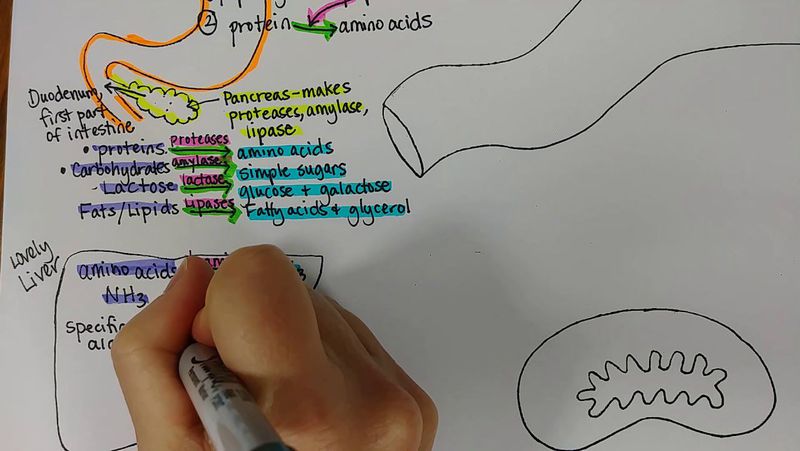 ② protein → amino acids
Duodenum,
first part
of intestine
Pancreas-makes
proteases, amylase,
lipase
• proteins proteases → amino acids
• Carbohydrates amylase → simple sugars
- Lactose lactase → glucose + galactose
Fats/Lipids Lipases → Fatty acids + glycerol
Lovely
Liver
amino acids
NH3